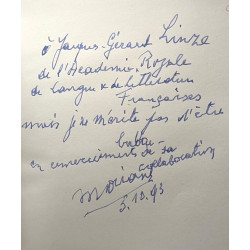 à Jacques-Gérard Linze
de l'Académie Royale
de langue & de littérature
Françaises
mais je ne mérite pas d'être
en remerciements de sa
collaboration
3.10.93